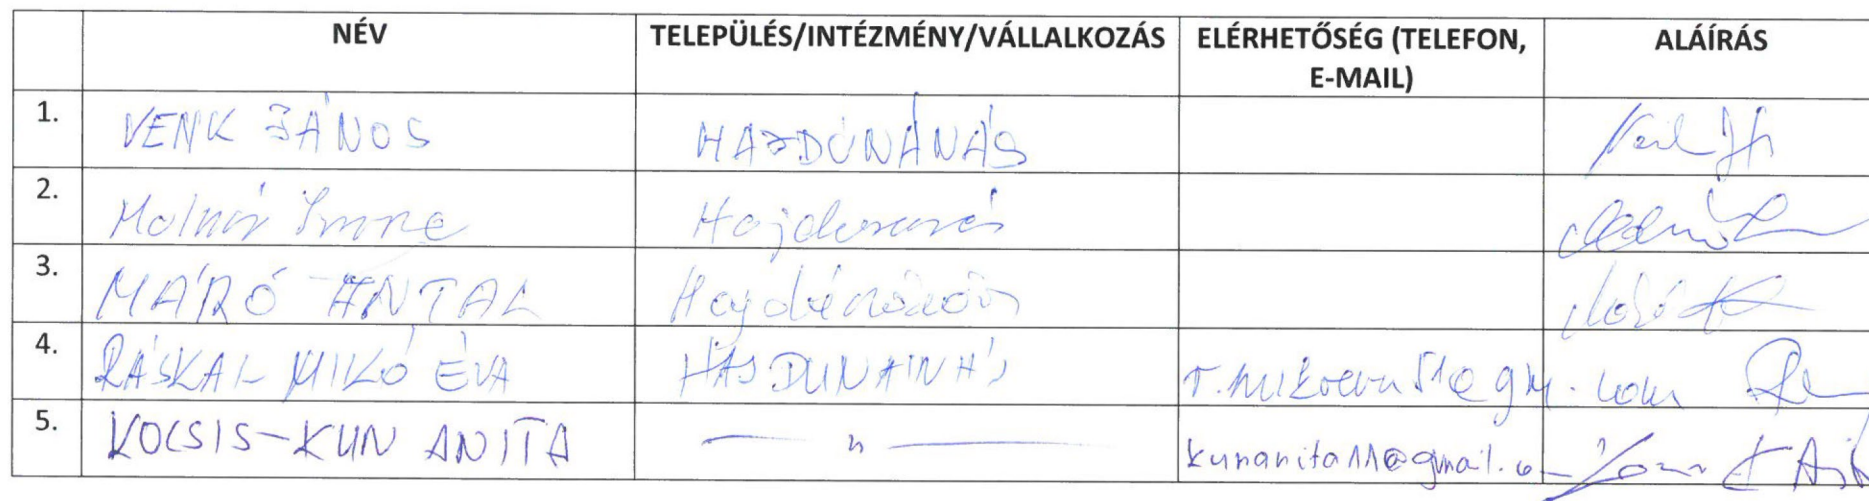 NÉV TELEPÜLÉS/INTÉZMÉNY/VÁLLALKOZÁS ELÉRHETŐSÉG (TELEFON, E-MAIL) ALÁÍRÁS
1. VENK JÁNOS HAJDÚNÁNÁS
2. Molnár Imre Hajdunánás
3. MÁRÓ ANTAL
4. RÁSKAI MIKÓ ÉVA HAJDUNÁNÁS
5. KOCSIS-KUN ANITA — " — kunanita11@gmail.co